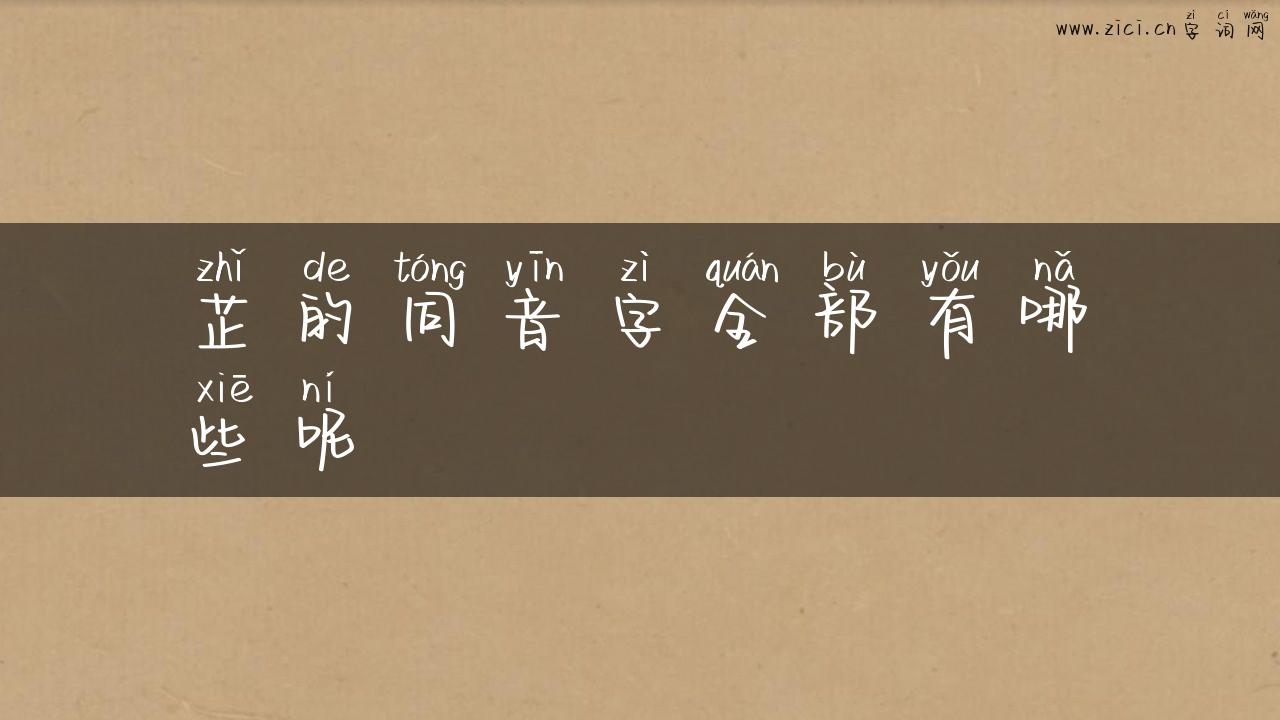 zì cí wǎng
www.zici.cn 字词网
zhǐ de tóng yīn zì quán bù yǒu nǎ
芷的同音字全部有哪
xiē ní
些呢